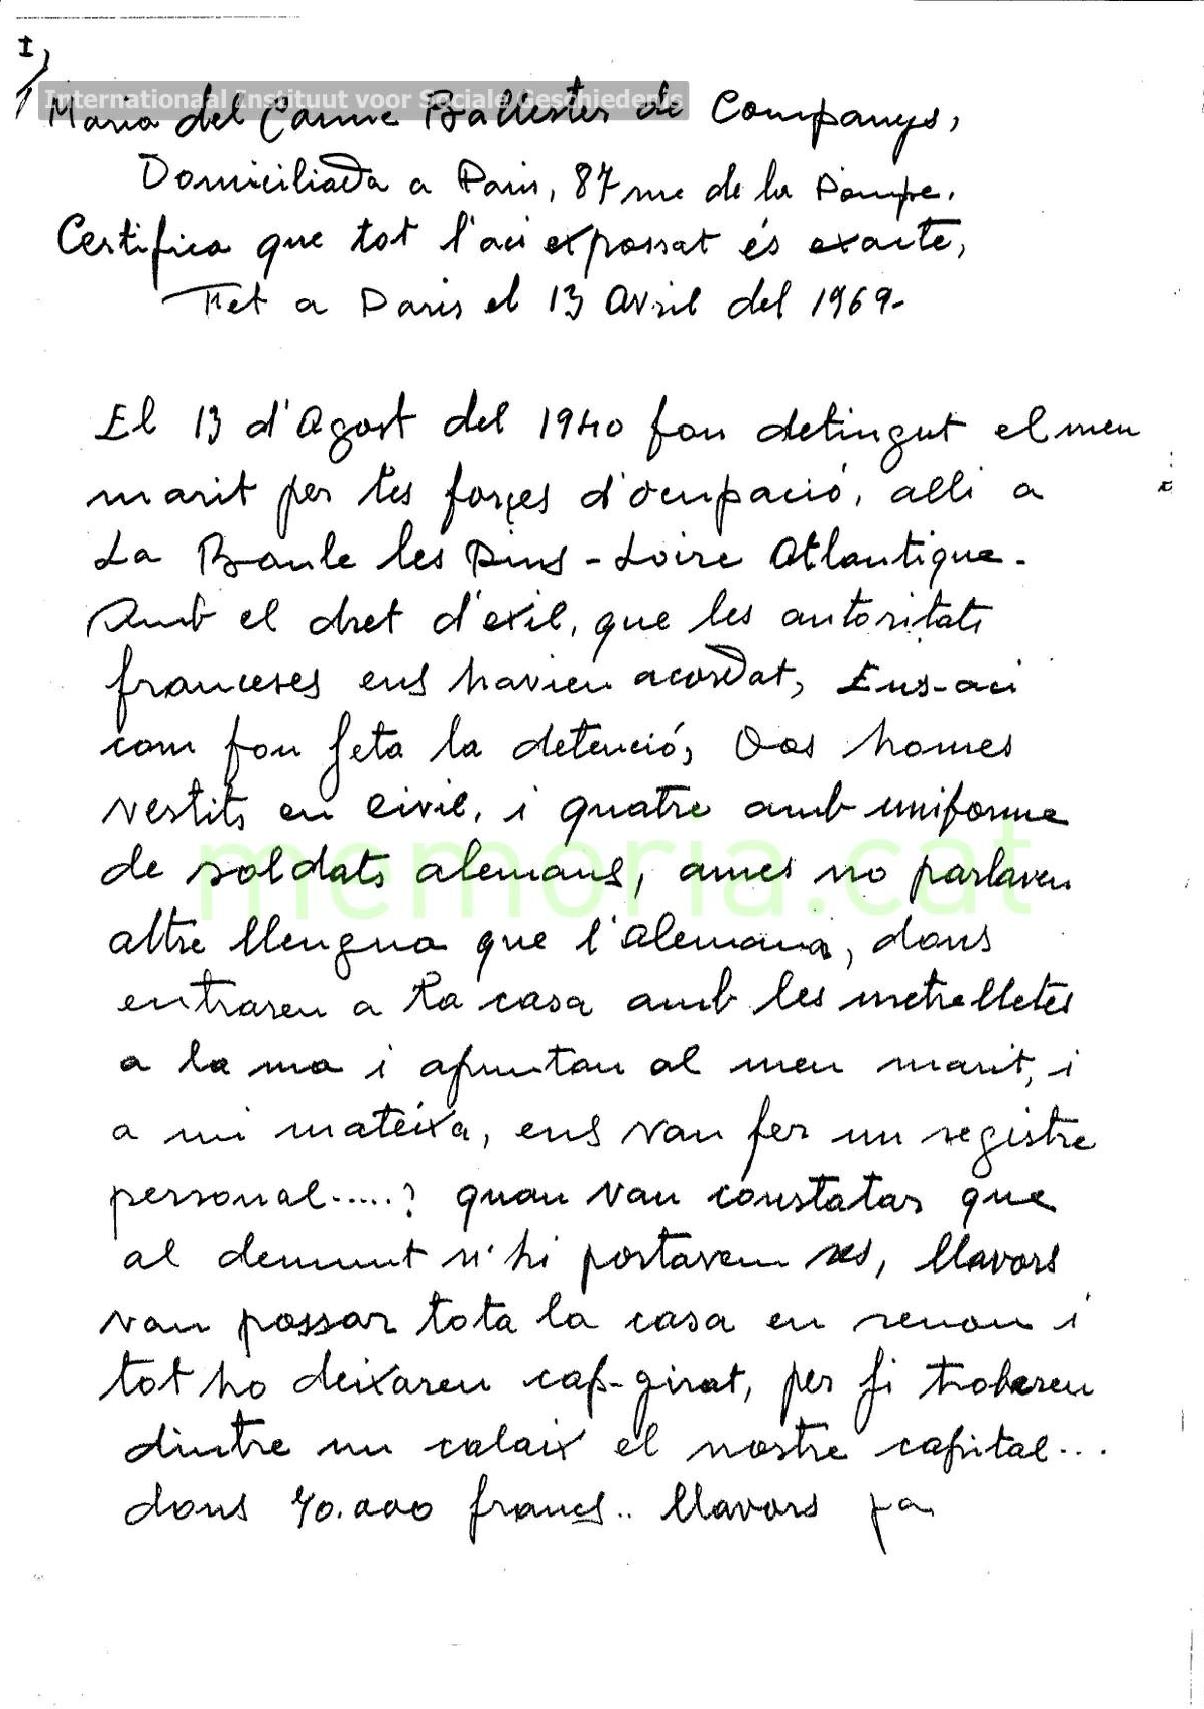 I)
Internationaal Instituut voor Sociale Geschiedenis
Maria del Carme Ballester de Companys,
Domiciliada a Paris, 87 rue de la Pompe.
Certifico que tot l'aci expossat és exacte,
Fet a Paris el 13 Avril del 1969-
El 13 d'Agost del 1940 fou detingut el meu
marit per les forçes d'ocupació, alli a
La Baule les Pins - Loire Atlantique-
Amb el dret d'exil, que les autoritats
franceses ens havien acordat, Eus-aci
com fou feta la detenció, Dos homes
vestits en civil, i quatre amb uniforme
de soldats alemans, ames no parlaven
altre llengua que l'alemana, dons
entraren a la casa amb les metrelletes
a la ma i apuntan al meu marit, i
a mi mateixa, ens van fer un registre
personal.....? quan van constatar que
al demunt n'hi portavem res, llavors
van possar tota la casa en renou i
tot ho deixaren cap-girat, per fi trobaren
dintre un calaix el nostre capital...
dons 70.000 francs.. llavors pa
memoria.cat